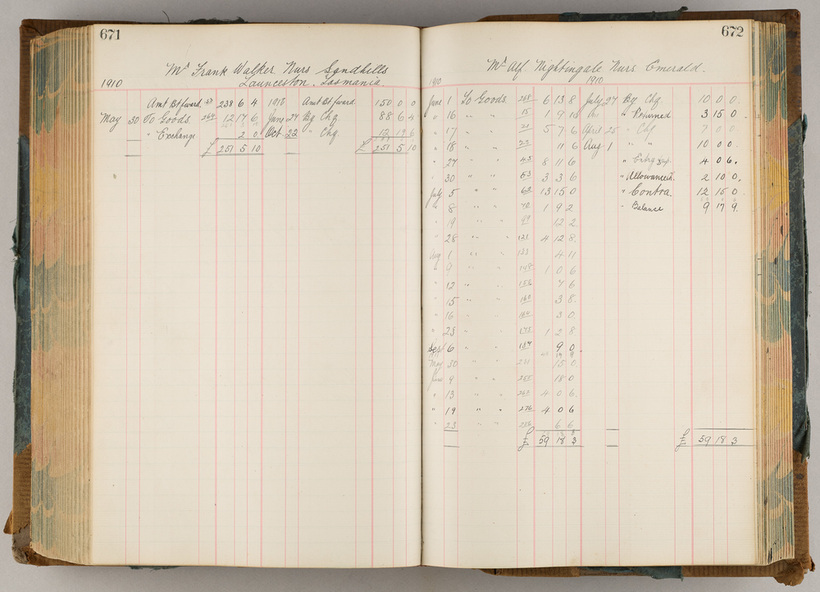 671
Mr Frank Walker Nurs Sandhills
1910 Launceston. Tasmania.
Amt Bt forward 238 6 4 1910 Amt Bt forward 150 0 0
May 30 To Goods 12 17 6 June 24 By Chq 88 6 4
" Exchange 2 0 Oct 22 " Chq 12 19 6
£ 251 5 10 £ 251 5 10
672
Mr Alf. Nightingale Nurs Emerald.
1910 1910
June 1 To Goods. 6 13 8 July 27 By Chq 10 0 0
" 16 " " 15 1 9 10 " Returned 3 15 0
" 17 " " 5 7 6 April 25 " Chq 7 0 0
" 18 " " 11 6 Aug 1 " " 10 0 0
" 27 " " 43 8 11 6 4 0 6
" 30 " " 53 3 3 6 " Allowances 2 10 0
July 5 " " 13 15 0 " Contra. 12 15 0
" 8 " " 72 1 9 2 " Balance 9 17 9
" 19 " " 12 2
" 28 " " 121 4 12 8
Aug 1 " " 4 11
" 9 " " 1 0 6
" 12 " " 7 6
" 15 " " 3 8
" 16 " " 3 0
" 23 " " 1 2 8
Sept 6 " " 9 0
May 30 " " 15 0
June 9 " " 18 0
" 13 " " 4 0 6
" 19 " " 4 0 6
" 23 " " 6 6
£ 59 18 3 £ 59 18 3